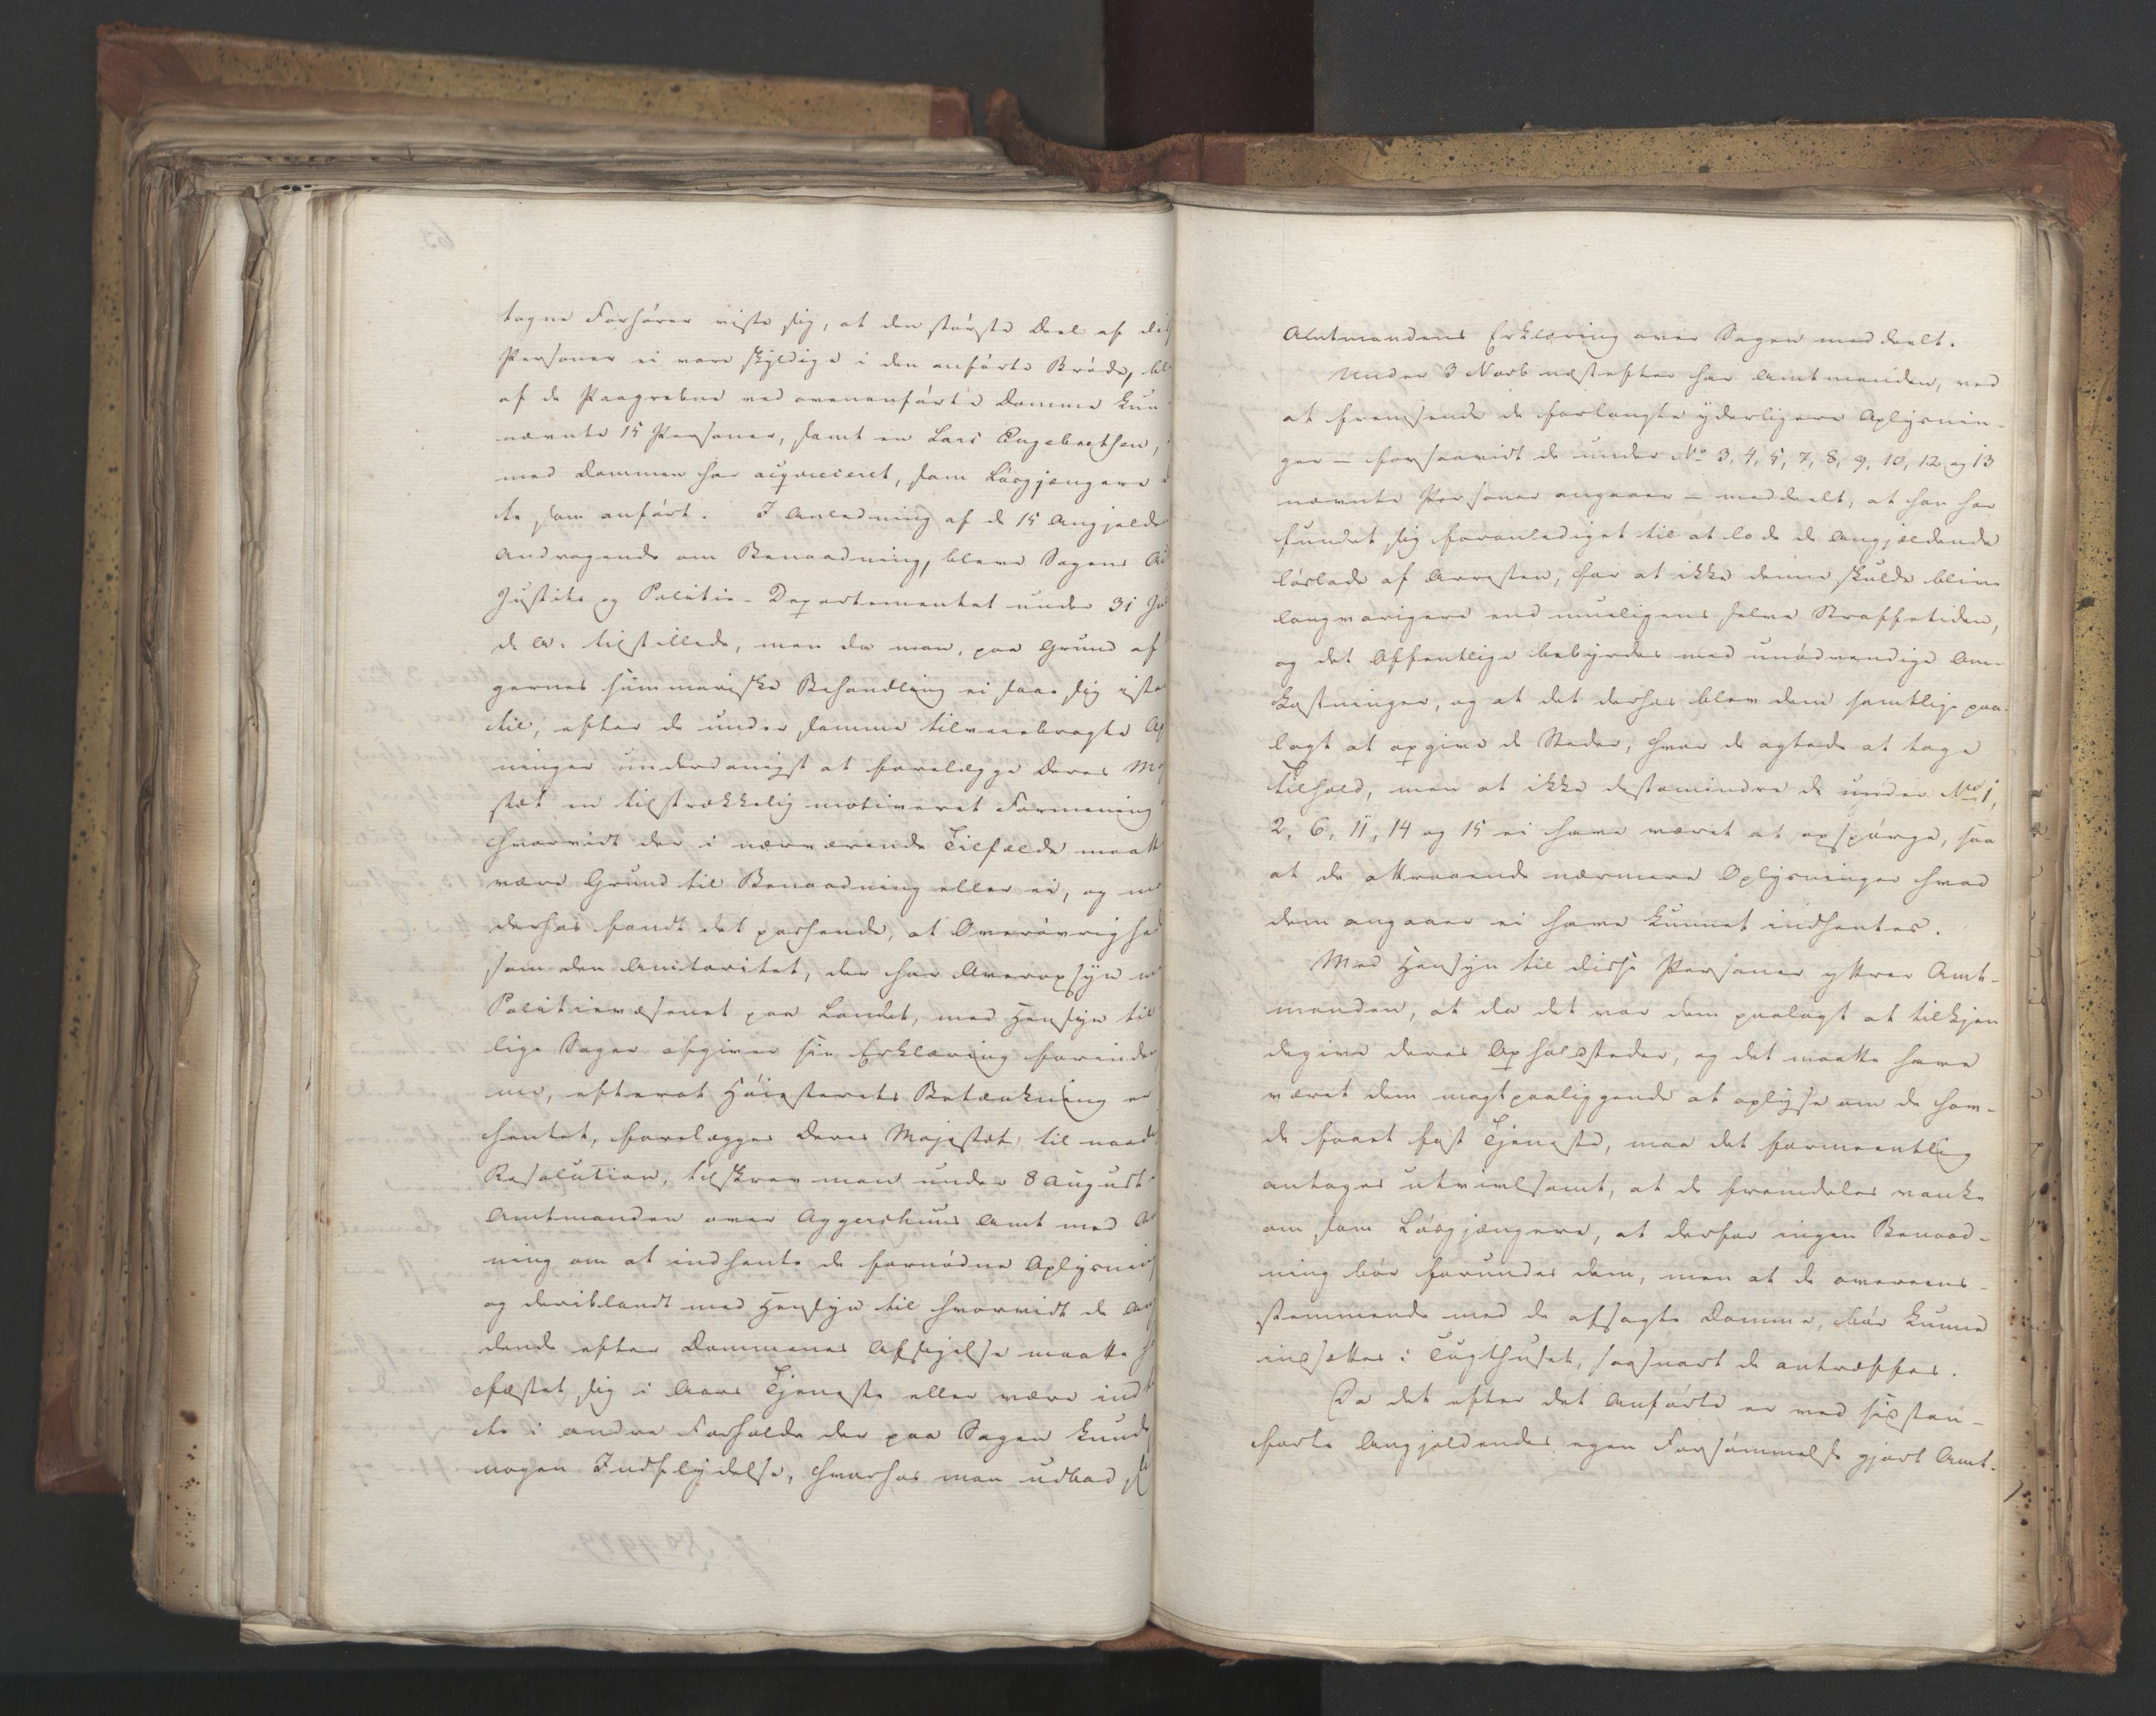 tagne Forhører viste sig, at den største Deel af dis
Personer ei vare skyldige i den anførte Brøde, bl
af de Paagrebne ved ovenanførte Domme kun
nævnte 15 Personer, samt en Lars Engebrethsen,
med Dommen har acqviesceret, som Løsgjængere
te som anført. I Anledning af de 15 Angjelde
Andragende om Benaadning, bleve Sagens Ac
Justits og Politie-Departementet under 31 Jul
d. A. tilstillede, men da man, paa Grund af
gernes summariske Behandling ei saae sig istan
til, efter de under samme tilveiebragte Op
ninger underdanigst at forelægge Deres Maj
stæt en tilstrækkelig motiveret Formening
hvorvidt der i nærværende Tilfælde maatte
være Grund til Benaadning eller ei, og m
derhos fandt det passende, at Overøvrighed
som den Auctoritet, der har Overopsyn m
Politievæsenet paa Landet, med Hensyn til
lige Sager afgiver sin Erklæring forinden
me, efterat Høiesterets Betænkning er
hentet, forelægges Deres Majestæt til naadig
Resolution, tilskrev man under 8 August
Amtmanden over Aggershuus Amt med An
ning om at indhente de fornødne Oplysning
og deriblandt med Hensyn til hvorvidt de Ang
dende efter Dommenes Afsigelse maatte h
fæstet sig i Aars Tjeneste eller være indt
te i andre Forholde der paa Sagen kunde
nogen Indflydelse, hvorhos man udbad s
Amtmandens Erklæring over Sagen meddeelt.
Under 3 Novb næstefter har Amtmanden, ved
at fremsende de forlangte yderligere Oplysnin-
ger - forsaavidt de under No 3, 4, 5, 7, 8, 9, 10, 12 og 13
nævnte Personer angaaer - meddeelt, at han har
fundet sig foranlediget til at lade de Angjældende
løslade af Arresten, for at ikke denne skulde blive
langvarigere end mueligens selve Straffetiden,
og det Offentlige bebyrdes med unødvendige Om-
kostninger, og at det derhos blev dem samtlige paa-
lagt at opgive de Steder, hvor de agtede at tage
Tilhold, men at ikke destomindre de under No 1,
2, 6, 11, 14 og 15 ei have været at opspørge, saa
at de attraaende nærmere Oplysninger hvad
dem angaaer ei have kunnet indhentes.
Med Hensyn til disse Personer yttrer Amt-
manden, at da det var dem paalagt at tilkjen
degive deres Opholdssteder, og det maatte have
været dem magtpaaliggende at oplyse om de hav-
de faaet fast Tjeneste, maa det formeentlig
antages utvivlsomt, at de fremdeles vanke
om som Løsgjængere, at derfor ingen Benaad-
ning bør forundes dem, men at de overeens-
stemmende med de afsagte Domme, bør kunne
indsættes i Tugthuset, saasnart de antræffes.
Da det efter det Anførte er ved sidstan-
førte Angjeldendes egen Forsømmelse gjort Amt-